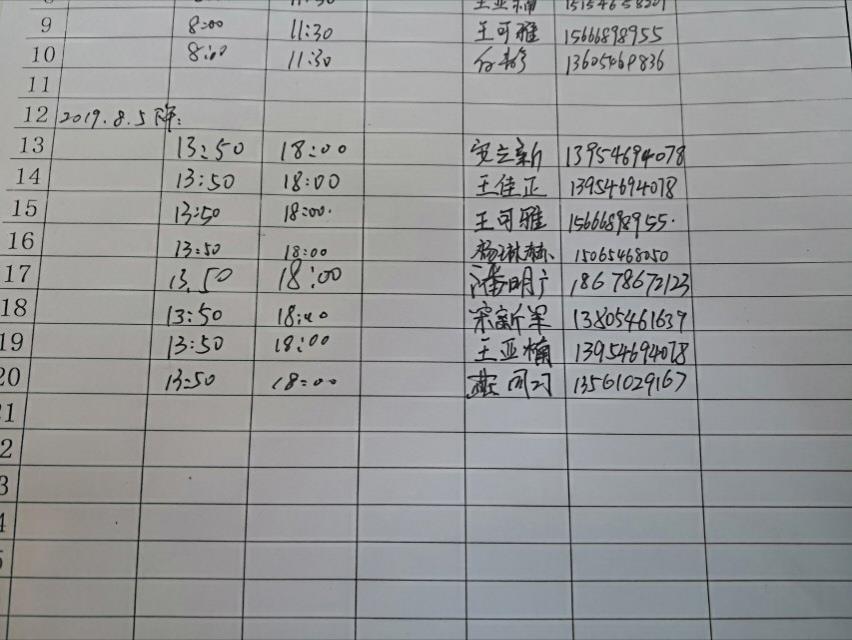 11:30 王亚楠
9 8:00 11:30 王可雅 15666898955
10 8:00 11:30 13605469836
11
12 2019.8.5下午:
13 13:50 18:00 安立新 13954694078
14 13:50 18:00 王佳正 13954694078
15 13:50 18:00. 王可雅 15666898955.
16 13:50 18:00 杨琳赫 15065468050
17 13.50 18:00 潘明广 18678672123
18 13:50 18:00 宋新军 13805461639
19 13:50 18:00 王亚楠 13954694078
20 13:50 18:00 13561029167